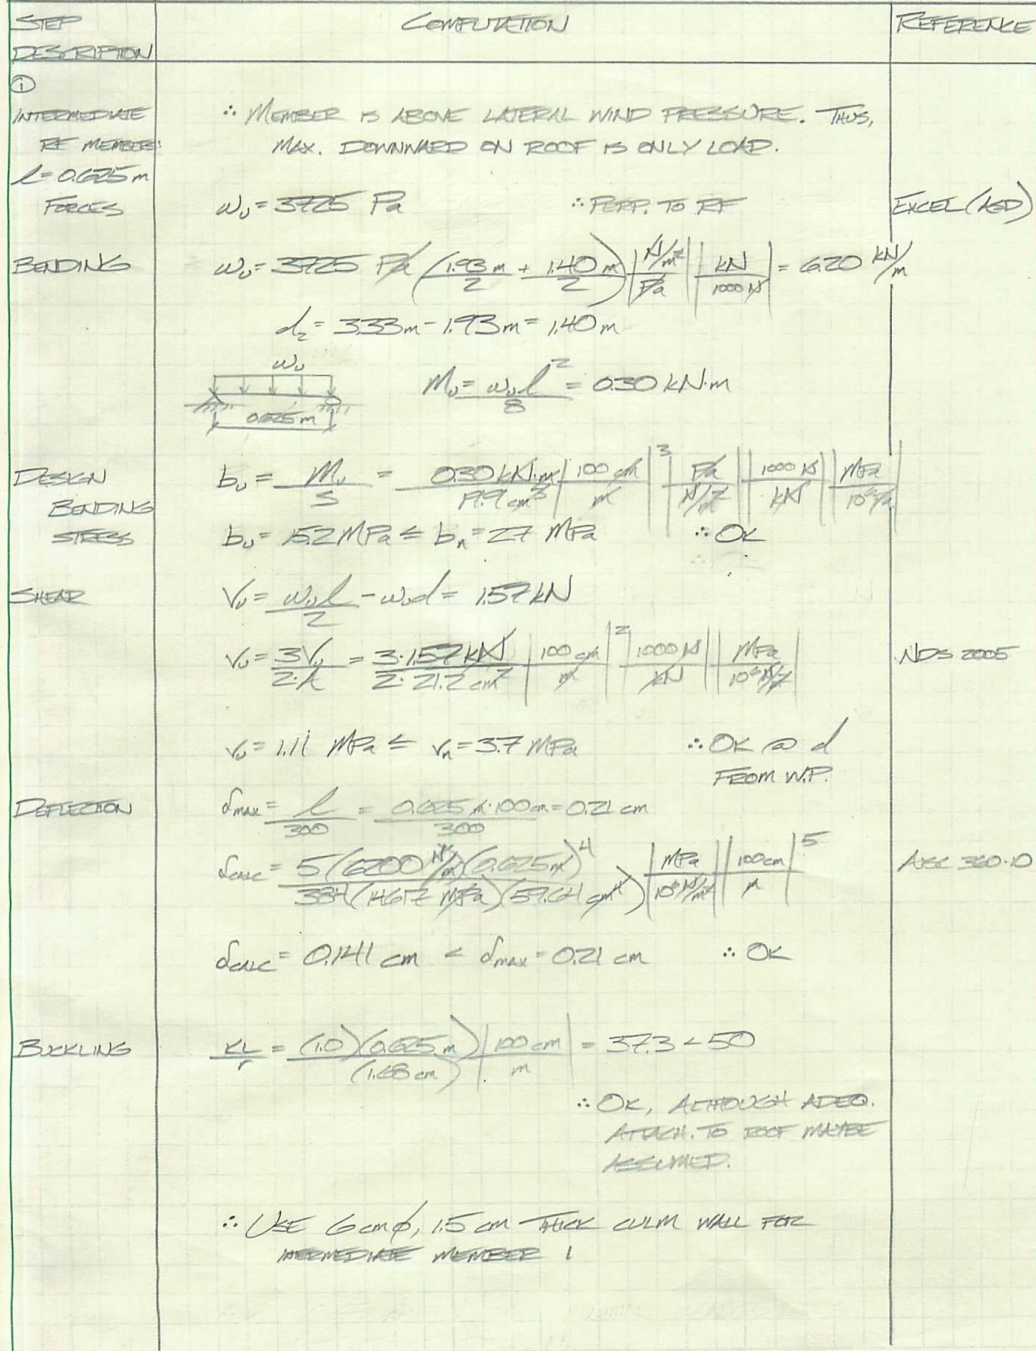 STEP DESCRIPTION COMPUTATION REFERENCE
①
INTERMEDIATE RF MEMBER:
l = 0.625 m
FORCES
∴ MEMBER IS ABOVE LATERAL WIND PRESSURE. THUS,
MAX. DOWNWARD ON ROOF IS ONLY LOAD.
ωᵤ = 3725 Pa ∴ PERP. TO RF EXCEL (ASD)
BENDING ωᵤ = 3725 Pa (1.93 m/2 + 1.40 m/2) | N/m² / Pa | kN / 1000 N | = 6.20 kN/m
d₂ = 3.33 m - 1.93 m = 1.40 m
ωᵤ
0.625 m
Mᵤ = ωᵤl²/8 = 0.30 kN·m
DESIGN BENDING STRESS
bᵤ = Mᵤ/S = 0.30 kN·m / 19.9 cm³ | 100 cm / m |³ | Pa / N/m² | 1000 N / kN | MPa / 10⁶ Pa |
bᵤ = 15.2 MPa ≤ bₙ = 27 MPa ∴ OK
SHEAR Vᵤ = ωᵤl/2 - ωᵤd = 1.57 kN
vᵤ = 3Vᵤ/2·A = 3·1.57 kN / 2·21.2 cm² | 100 cm / m |² | 1000 N / kN | MPa / 10⁶ N/m² | NDS 2005
vᵤ = 1.11 MPa ≤ vₙ = 3.7 MPa ∴ OK @ d
FROM W.P.
DEFLECTION δmax = l/300 = 0.625 m·100 cm/300 = 0.21 cm
δcalc = 5(6200 N/m)(0.625 m)⁴ / 384(14617 MPa)(59.64 cm⁴) | MPa / 10⁶ N/m² | 100 cm / m |⁵ AISC 360-10
δcalc = 0.141 cm < δmax = 0.21 cm ∴ OK
BUCKLING KL/r = (1.0)(0.625 m)/(1.68 cm) | 100 cm / m | = 37.3 < 50
∴ OK, ALTHOUGH ADEQ.
ATTACH. TO ROOF MAYBE
ASSUMED.
∴ USE 6 cm ϕ, 1.5 cm THICK CULM WALL FOR
INTERMEDIATE MEMBER 1